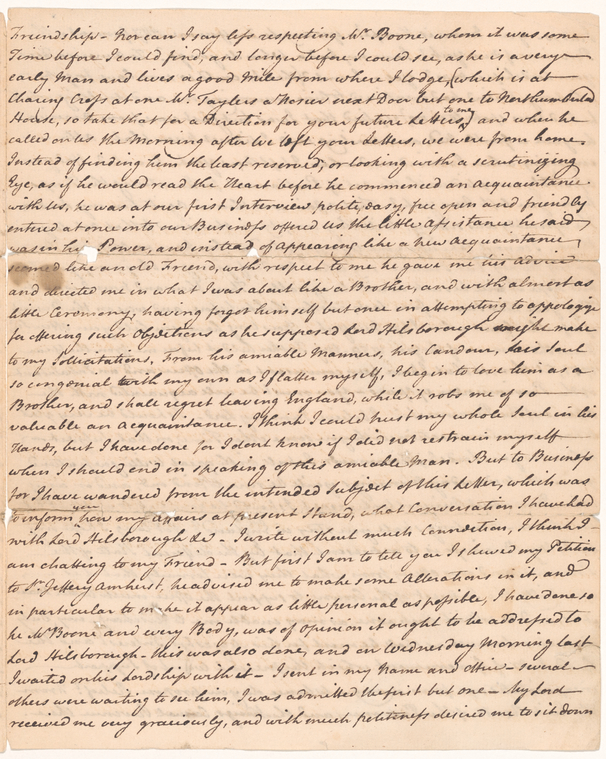 Friendship - Nor can I say less respecting Mr. Boone, whom it was some
Time before I could find, and longer before I could see, as he is a very
early Man and lives a good Mile from where I lodge, (which is at
Charing Cross at one Mr. Taylers a Hosier next Door but one to Northumberland
House, so take that for a Direction for your future Letters to me,) and when he
called on us the Morning after we left your Letters, we were from home.
Instead of finding him the least reserved, or looking with a scrutinizing
Eye, as if he would read the Heart before he commenced an acquaintance
with us, he was at our first Interview, polite, easy, free open and friendly
entered at once into our Business offered us the little Assistance he said
was in his Power, and instead of appearing like a new Acquaintance,
seemed like an old Friend, with respect to me he gave me his Advice
and directed me in what I was about like a Brother, and with almost as
little Ceremony, having forgot himself but once in attempting to appologize
for offering such Objections as he supposed Lord Hilsborough might make
to my Sollicitations, From his amiable Manners, his Candour, his Soul
so congenial with my own as I flatter myself, I begin to love him as a
Brother, and shall regret leaving England, while it robs me of so
valuable an Acquaintance. I think I could trust my whole Soul in his
Hands, but I have done for I dont know if I did not restrain myself
when I should end in speaking of this amiable Man. But to Business
for I have wandered from the intended Subject of this Letter, which was
to inform you how my Affairs at present Stand, what Conversation I have had
with Lord Hilsborough &c - I write without much Connection, I think I
am chatting to my Friend - But first I am to tell you I shewed my Petition
to Sr. Jeffery Amherst, he advised me to make some Alterations in it, and
in particular to make it appear as little personal as possible, I have done so
he Mr Boone and every Body, was of opinion it ought to be addressed to
Lord Hilsborough - this was also done, and on Wednesday Morning last
I waited on his Lordship with it - I sent in my Name and Office - several
others were waiting to see him, I was admitted the first but one - My Lord
received me very graciously, and with much politeness desired me to sit down